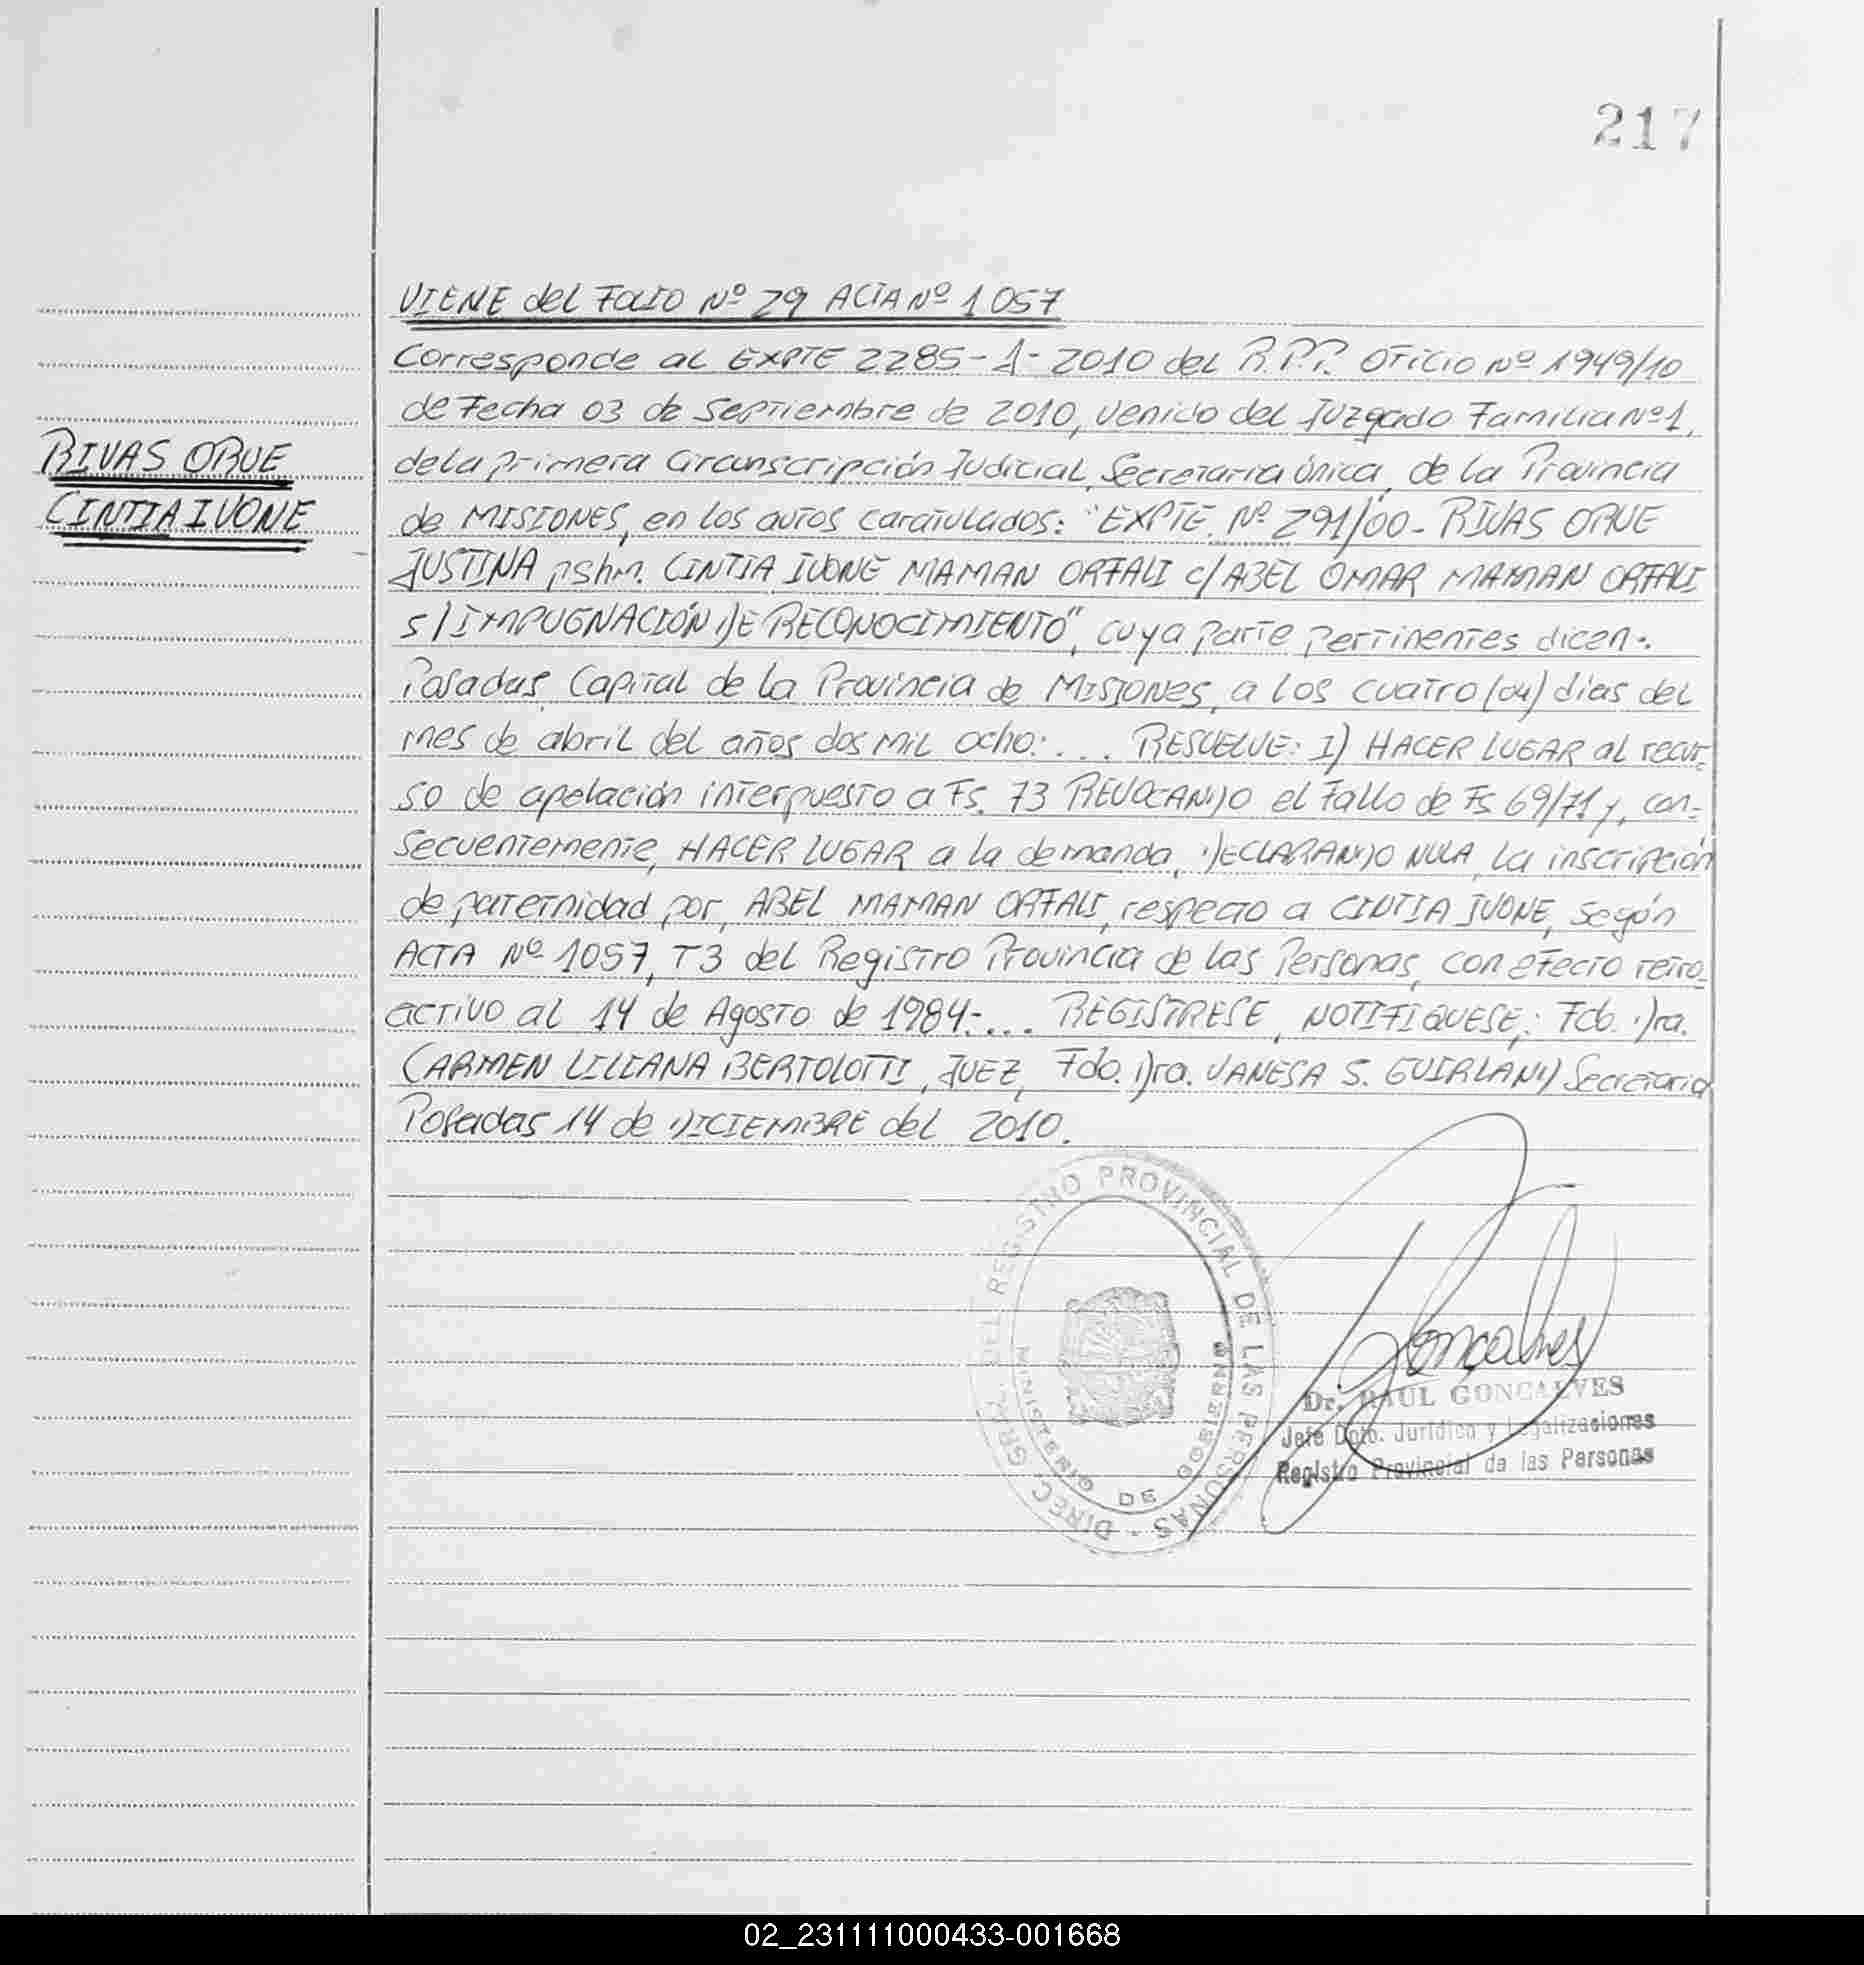 217
VIENE del Folio Nº 29 ACTA Nº 1057
Corresponde al EXPTE 2285-1-2010 del R.P.P. Oficio Nº 1949/10
de Fecha 03 de Septiembre de 2010, venido del Juzgado Familia Nº 1,
RIVAS ORUE
CINTIA IVONE
de la primera Circunscripción Judicial, Secretaria única, de la Provincia
de MISIONES, en los autos caratulados: "EXPTE. Nº 291/00- RIVAS ORUE
JUSTINA pshm. CINTIA IVONE MAMAN ORFALI c/ ABEL OMAR MAMAN ORFALI
s/ IMPUGNACIÓN DE RECONOCIMIENTO", cuya parte pertinentes dicen:
Posadas, Capital de la Provincia de Misiones, a los cuatro (04) días del
mes de abril del años dos mil ocho:... RESUELVE: I) HACER LUGAR al recur-
so de apelación interpuesto a Fs. 73 REVOCANDO el Fallo de Fs 69/71 y, con-
secuentemente, HACER LUGAR a la demanda, DECLARANDO NULA, la inscripción
de paternidad por, ABEL MAMAN ORFALI, respecto a CINTIA IVONE, según
ACTA Nº 1057, T3 del Registro Provincia de las Personas, con efecto retro-
activo al 14 de Agosto de 1984-... REGISTRESE, NOTIFIQUESE; Fdo. Dra.
CARMEN LILIANA BERTOLOTTI, JUEZ, Fdo. Dra. VANESA S. GUIRLAND Secretaria
Posadas 14 de DICIEMBRE del 2010.
DIREC. GRAL. DEL REGISTRO PROVINCIAL DE LAS PERSONAS -
MINISTERIO DE GOBIERNO
Goncalves
Dr. RAUL GONCALVES
Jefe Dpto. Jurídico y Legalizaciones
Registro Provincial de las Personas
02_231111000433-001668